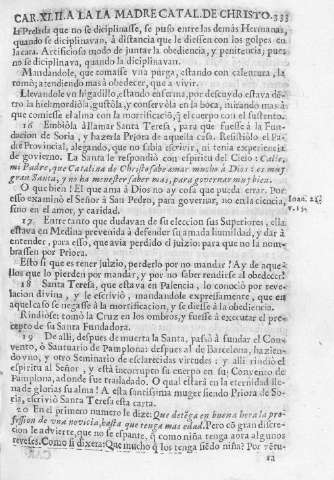 CAR.XLII.A LA LA MADRE CATAL.DE CHRISTO. 333
la Prelada que no se diciplinasse, se puso entre las demás Hermanas,
quando se diciplinavan, à distancia que le diessen con los golpes en
la cara. Artificioso modo de juntar la obediencia, y penitencia; pues
no se diciplinava, quando la diciplinavan.
Mandandole, que tomasse vna purga, estando con calentura, la
tomò; atendiendo mas à obedecer, que a vivir.
Llevandole vn higadillo, estando enferma, por descuydo estava dẽ-
tro la hiel: mordiòla, gustòla, y conservòla en la boca, mirando mas à
que comiesse el alma con la mortificaciõ, q̃ el cuerpo con el sustento.
16 Embiòla à llamar Santa Teresa, para que fuesse à la Fun-
dacion de Soria, y hazerla Priora de aquella casa. Resistiòlo el Pa-
dre Provincial, alegando, que no sabia escrivir, ni tenia experiencia
de govierno. La Santa le respondiò con espiritu del Cielo: Calle,
mi Padre, que Catalina de Christo sabe amar mucho à Dios: es muy
gran Santa; y no ha menester saber mas, para governar muy bien.
O que bien! El que ama à Dios no ay cosa que pueda errar. Por
esso examinò el Señor à San Pedro, para governar, no en la ciencia,
sino en el amor, y caridad.
Ioan. 21.
v. 15.
17 Entre tanto que dudavan de su eleccion sus Superiores, ella
estava en Medina prevenida à defender su amada humildad, y dar à
entender, para esso, que avia perdido el juizio: para que no la nom-
brassen por Priora.
Esto si que es tener juizio, perderlo por no mandar! Ay de aque-
llos que lo pierden por mandar, y por no saber rendirse al obedecer!
18 Santa Teresa, que estava en Palencia, lo conociò por reve-
lacion divina, y le escriviò, mandandole expressamente, que en
aquel caso se negasse à la mortificacion, y se diesse à la obediencia.
Rindiòse: tomò la Cruz en los ombros, y fuesse à executar el pre-
cepto de su Santa Fundadora.
19 De alli, despues de muerta la Santa, passò à fundar el Conven-
to, ò Santuario de Pamplona: despues al de Barcelona, hazien-
do vno, y otro Seminario de esclarecidas virtudes: y alli rindiò el
espiritu al Señor, y està incorrupto su cuerpo en su Convento de
Pamplona, adonde fue trasladado. O qual estarà en la eternidad lle-
na de glorias su alma! A esta santissima muger siendo Priora de So-
ria, escriviò Santa Teresa esta carta.
20 En el primero numero le dize: Que detẽga en buena hora la pro-
fession de vna novicia, hasta que tenga mas edad. Pero cõ gran discre-
cion le advierte, que no se espante, q̃ como niña tenga aora algunos
reveses. Como si dixera: Que mucho q̃ los tenga siẽdo niña? Por vẽtu-
ra